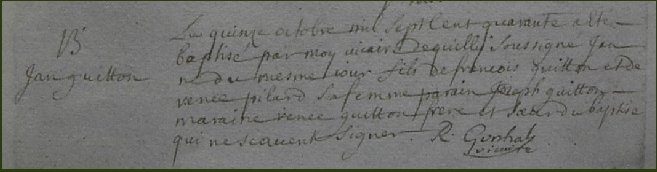 B
Jan guitton
Le quinze octobre mil sept Cent quarante a Ete
baptisé par moy vicaire de quilly Soussigne Jan
ne du mesme jour fils de francois guitton et de
renee pilard sa femme parain Joseph guitton
maraine renee guitton frere et Soeur du baptise
qui ne scauent signer. R.
vicaire